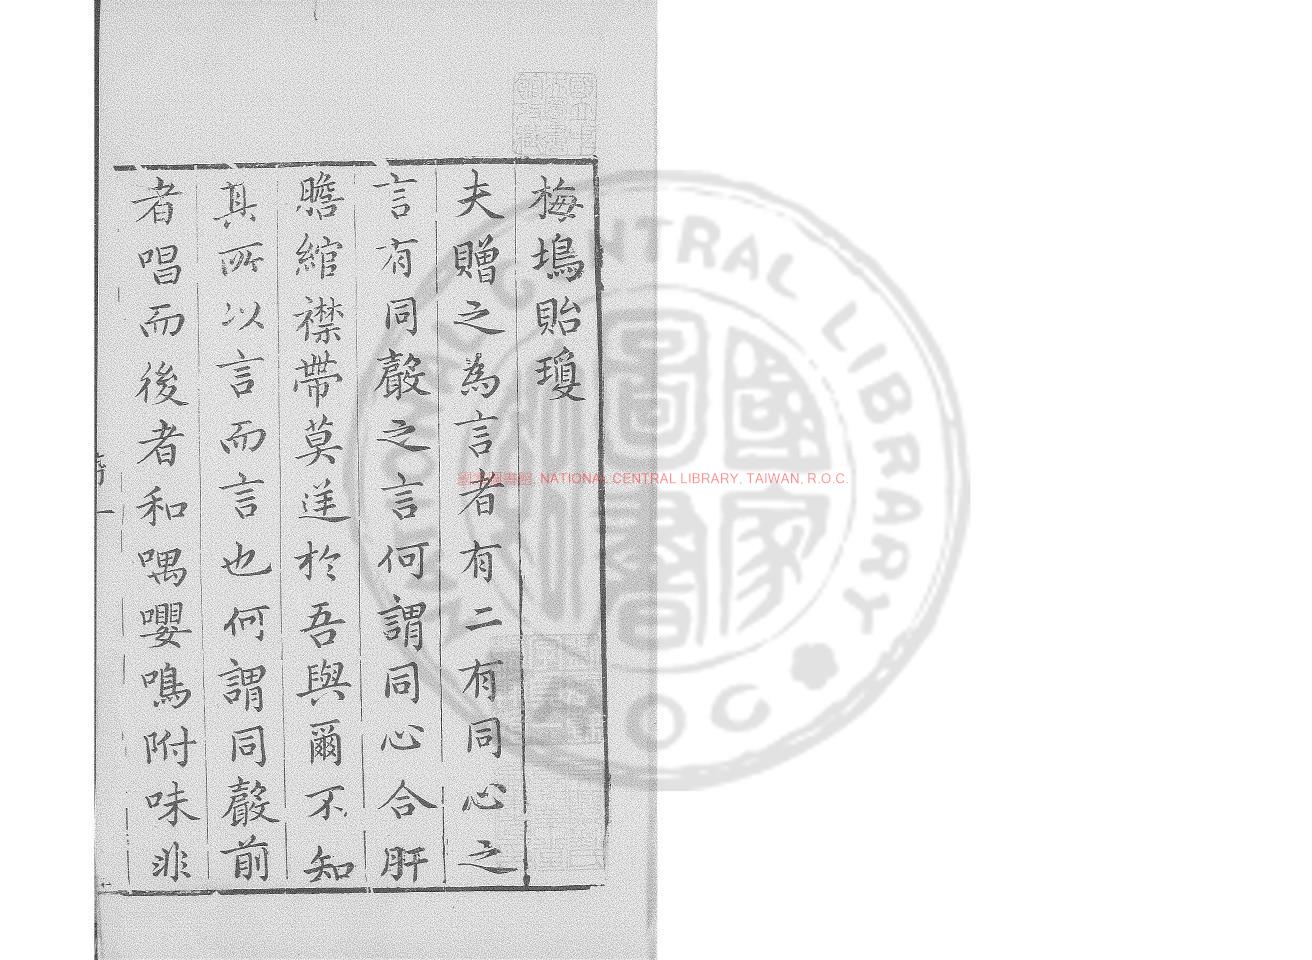 梅塢貽瓊
夫贈之為言者有二有同心之
言有同聲之言何謂同心合肝
膽綰襟帶莫逆於吾與爾不知
其所以言而言也何謂同聲前
者唱而後者和喁嚶鳴附味非
一
國家圖書館, NATIONAL CENTRAL LIBRARY, TAIWAN, R.O.C.
NATIONAL CENTRAL LIBRARY
R.O.C
國家
圖書